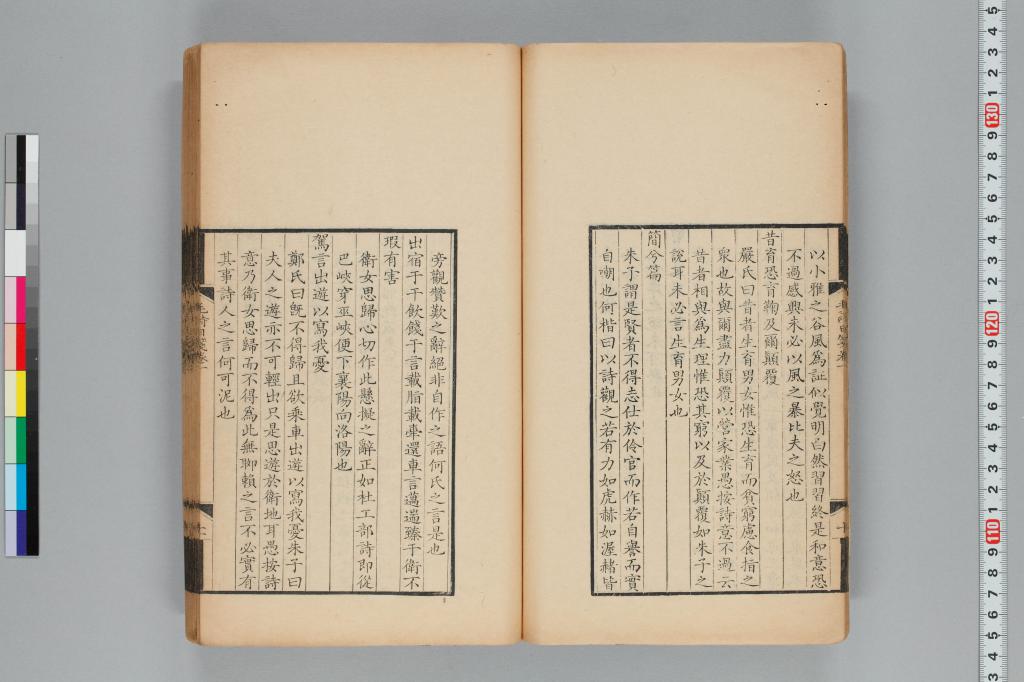 以小雅之谷風爲証似覺明白然習習終是和意恐
不過感興未必以風之暴比夫之怒也
昔育恐育鞠及爾顚覆
嚴氏曰昔者生育男女惟恐生育而貧窮慮食指之
衆也故與爾盡力顚覆以營家業愚按詩意不過云
昔者相與爲生理惟恐其窮以及於顚覆如朱子之
說耳未必言生育男女也
簡兮篇
朱子謂是賢者不得志仕於伶官而作若自譽而實
自嘲也何楷曰以詩觀之若有力如虎赫如渥赭皆
旁觀贊歎之辭絕非自作之語何氏之言是也
出宿于干飮餞于言載脂載舝還車言邁遄臻于衛不
瑕有害
衛女思歸心切作此懸擬之辭正如杜工部詩即從
巴峽穿巫峽便下襄陽向洛陽也
駕言出遊以寫我憂
鄭氏曰旣不得歸且欲乘車出遊以寫我憂朱子曰
夫人之遊亦不可輕出只是思遊於衛地耳愚按詩
意乃衛女思歸而不得爲此無聊賴之言不必實有
其事詩人之言何可泥也